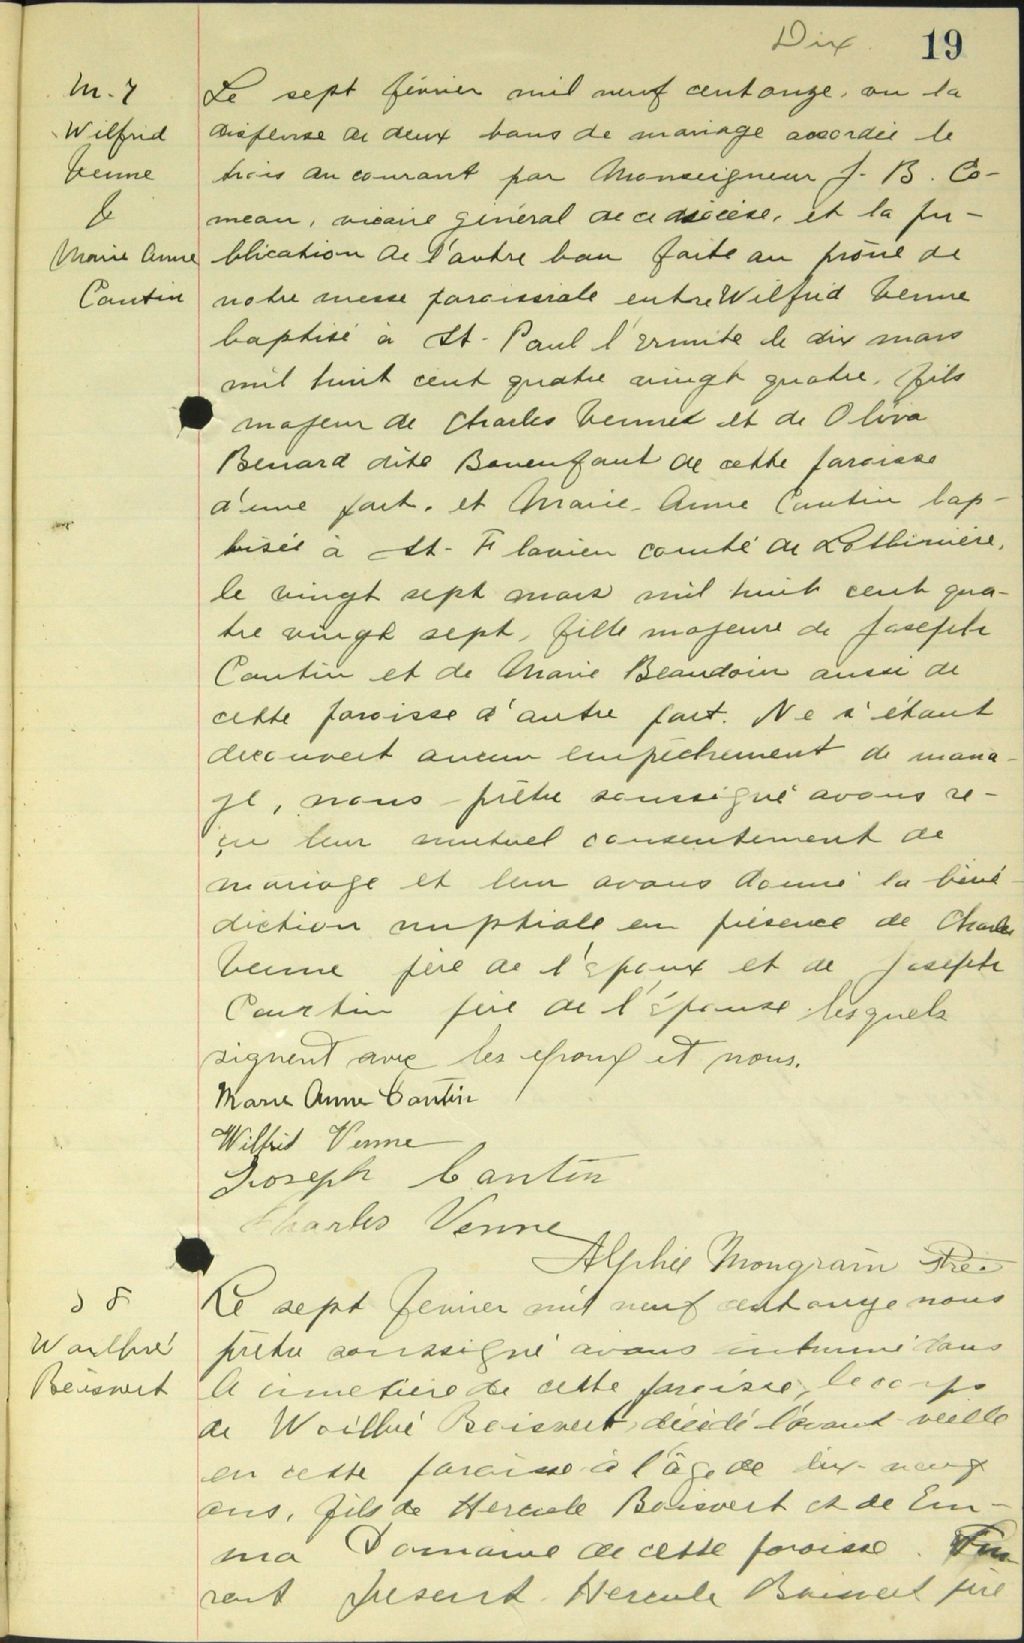 Dix. 19
M. 7
Wilfrid
Venne
&
Marie Anne
Cantin
Le sept février mil neuf cent onze, vu la
dispense de deux bans de mariage accordée le
trois du courant par Monseigneur J. B. Co-
meau, vicaire général de ce diocèse, et la pu-
blication de l'autre ban faite au prône de
notre messe paroissiale entre Wilfrid Venne
baptisé à St-Paul l'Ermite le dix mars
mil huit cent quatre vingt quatre, fils
majeur de Charles Venne et de Oliva
Benard dite Bonenfant de cette paroisse
d'une part, et Marie-Anne Cantin bap-
tisée à St-Flavien comté de Lotbinière,
le vingt sept mars mil huit cent qua-
tre vingt sept, fille majeure de Joseph
Cantin et de Marie Beaudoin aussi de
cette paroisse d'autre part. Ne s'étant
découvert aucun empêchement de maria-
ge, nous prêtre soussigné avons re-
çu leur mutuel consentement de
mariage et leur avons donné la béné-
diction nuptiale en présence de Charles
Venne père de l'époux et de Joseph
Cantin père de l'épouse lesquels
signent avec les époux et nous.
Marie Anne Cantin
Wilfrid Venne
Joseph Cantin
Charles Venne
Alphée Mongrain Ptre
S 8
Boisvert
Le sept février mil neuf cent onze nous
prêtre soussigné avons inhumé dans
le cimetière de cette paroisse, le corps
de Boisvert, décédé l'avant-veille
en cette paroisse à l'âge de dix-neuf
ans, fils de Hercule Boisvert et de Em-
ma Domaine de cette paroisse. Fu-
rent présent Hercule Boisvert père